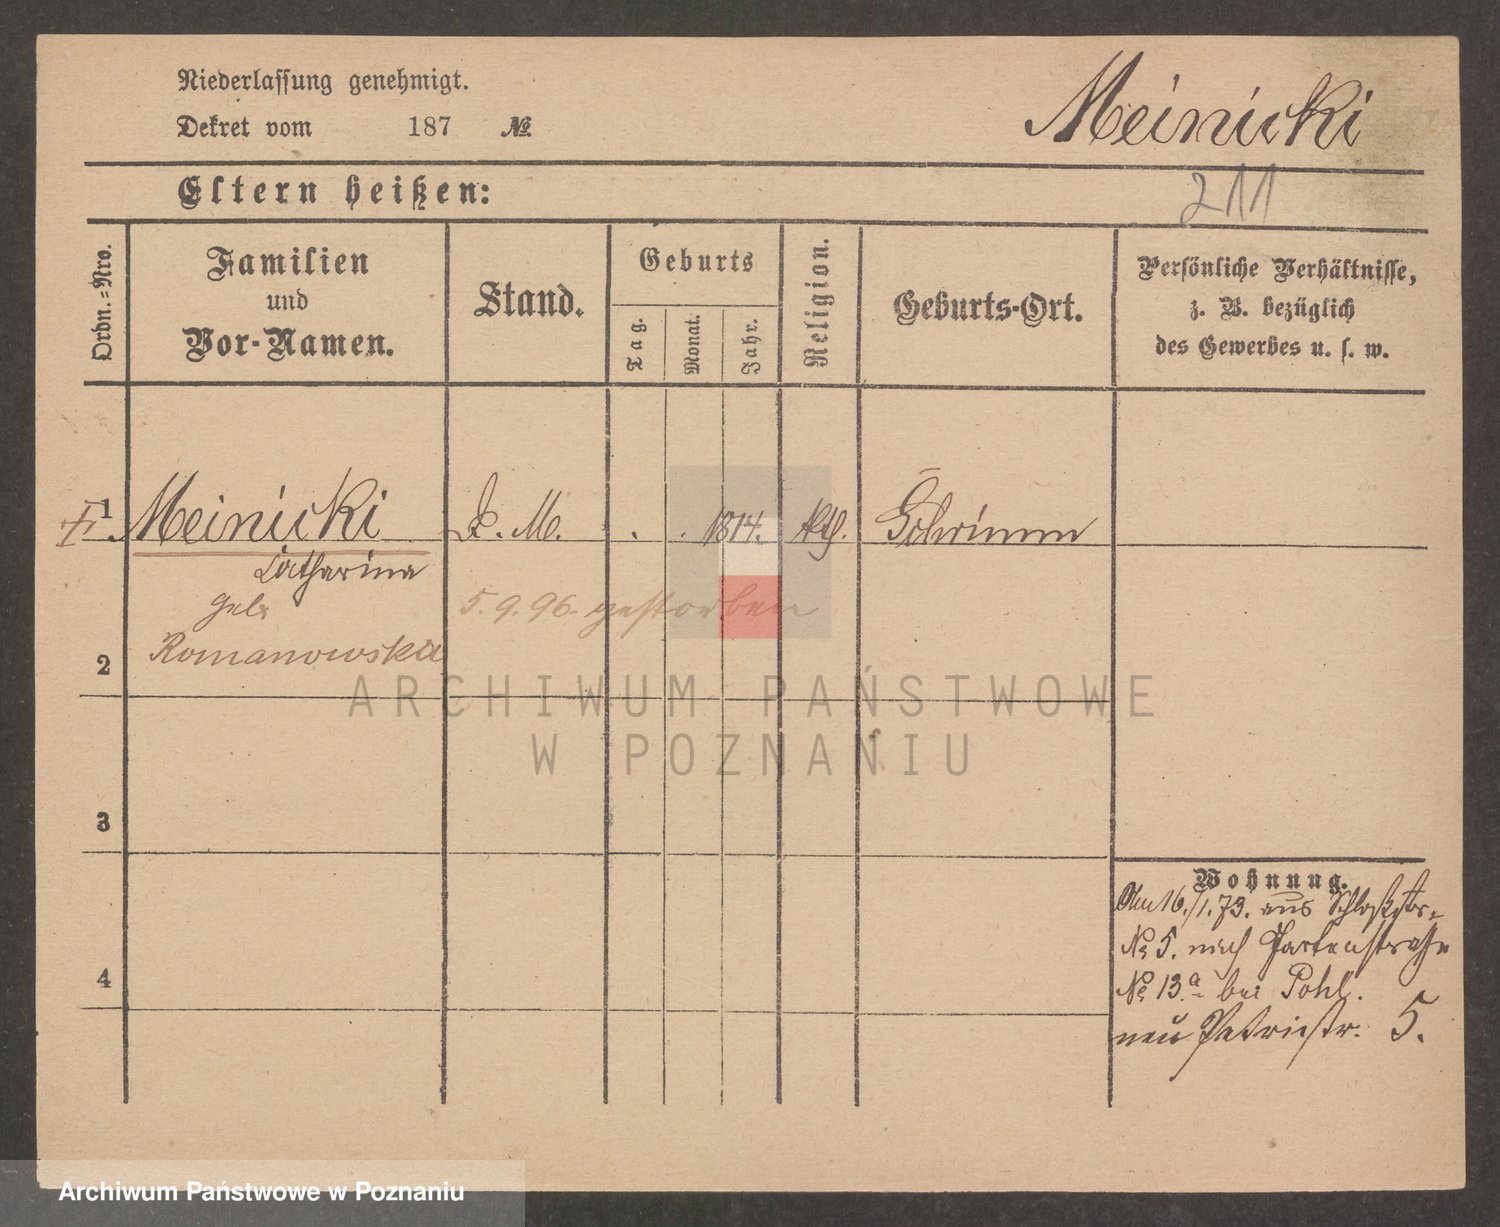 Niederlassung genehmigt.
Meinicki
Dekret vom 187 №
211
Eltern heißen:
Ordn.=Nro.
Familien
und
Vor-Namen.
Stand.
Geburts
Tag.
Monat.
Jahr.
Religion.
Geburts-Ort.
Persönliche Verhältnisse,
z. B. bezüglich
des Gewerbes u. s. w.
1 Meinicki . . 1814. kth. Schrimm
Catharina
geb.
Romanowska
5.9.96. gestorben
2
3
4
Wohnung.
Am 16./1.73. aus Schloßstr.
№ 5. nach Gartenstraße
№ 13.a bei Pohl.
neu Petristr. 5.
ARCHIWUM PAŃSTWOWE
W POZNANIU
Archiwum Państwowe w Poznaniu